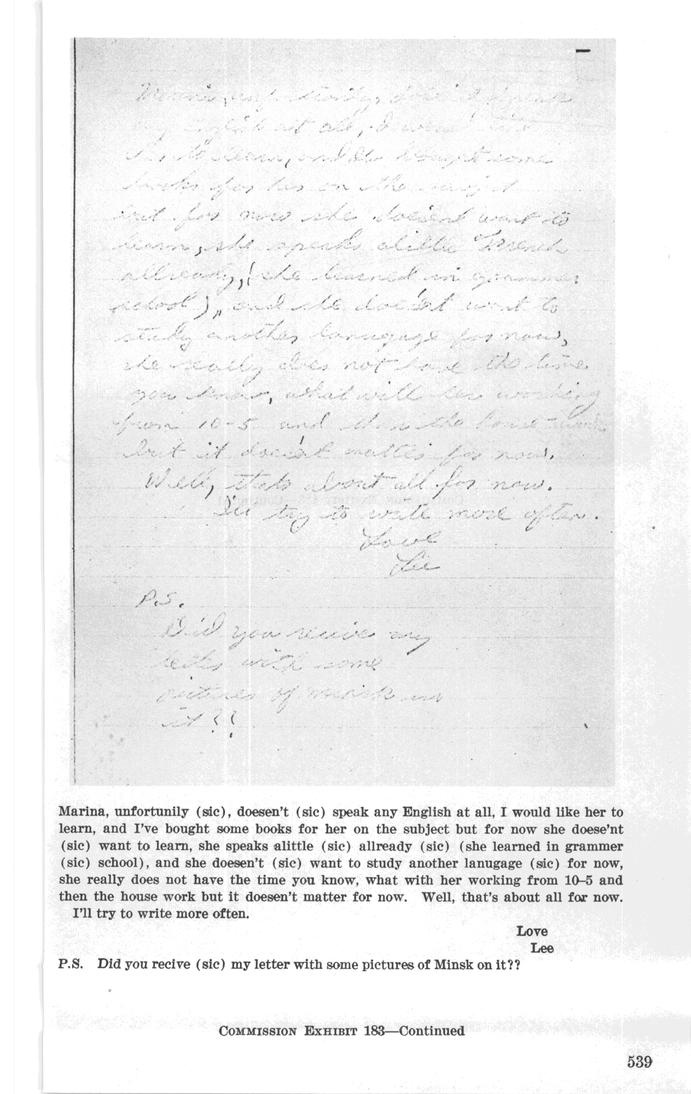 Marina, doesen't speak
any English at all, I would like
her to learn, and I've bought some
books for her on the subject
but for now she doesent want to
learn, she speaks alittle French
allready, (she learned in grammer
school), and she doesent want to
study another lanugage for now,
she really does not have the time
you know, what with her working
from 10-5 and then the house work
but it doesen't matter for now.
Well, thats about all for now.
I'll try to write more often.
Love
Lee
P.S.
Did you recive my
letter with some
pictures of Minsk in
it??
Marina, unfortunily (sic), doesen't (sic) speak any English at all, I would like her to
learn, and I've bought some books for her on the subject but for now she doese'nt
(sic) want to learn, she speaks alittle (sic) allready (sic) (she learned in grammer
(sic) school), and she doesen't (sic) want to study another lanugage (sic) for now,
she really does not have the time you know, what with her working from 10–5 and
then the house work but it doesen't matter for now. Well, that's about all for now.
I'll try to write more often.
Love
Lee
P.S. Did you recive (sic) my letter with some pictures of Minsk on it??
COMMISSION EXHIBIT 183—Continued
539